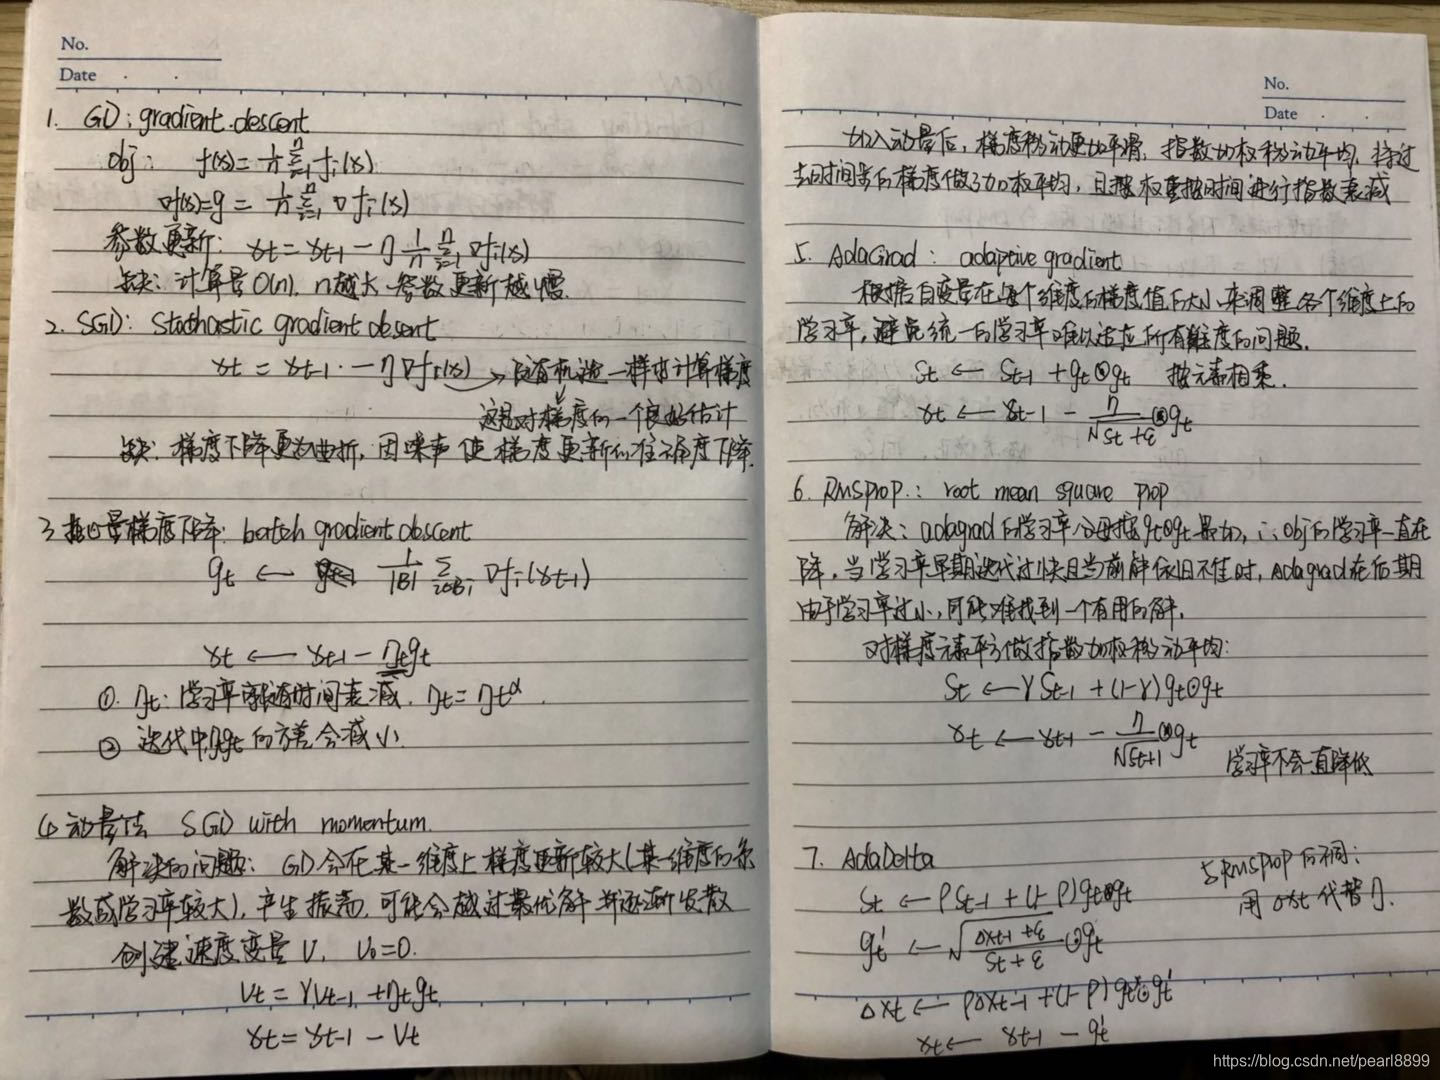 No.
Date
1. GD: gradient descent
Obj: f(x) = 1/n Σ_{i=1}^{n} f_i(x)
∇f(x) = g = 1/n Σ_{i=1}^{n} ∇f_i(x)
参数更新: x_t = x_{t-1} - η 1/n Σ_{i=1}^{n} ∇f_i(x)
缺: 计算量O(n), n越大 参数更新越慢.
2. SGD: Stochastic gradient descent
x_t = x_{t-1} - η∇f_i(x) → 随机选一样本计算梯度
这是对梯度的一个良好估计
缺: 梯度下降更为曲折, 因噪声使梯度更新的准确度下降.
3. 批量梯度下降: batch gradient descent
g_t ← 1/|B| Σ_{i∈B_i} ∇f_i(x_{t-1})
x_t ← x_{t-1} - η_t g_t
① η_t: 学习率随时间衰减. η_t = ηt^α.
② 迭代中η_t g_t的方差会减小.
4 动量法 SGD with momentum.
解决的问题: GD会在某一维度上梯度更新较大(某一维度的系
数或学习率较大), 产生振荡, 可能会越过最优解并逐渐发散
创建速度变量V, V_0=0.
V_t = γV_{t-1} + η_t g_t
x_t = x_{t-1} - V_t
No.
Date
加入动量后, 梯度移动更加平滑. 指数加权移动平均, 将过
去时间步的梯度做了加权平均, 且权重按时间进行指数衰减
5. AdaGrad: adaptive gradient
根据自变量在每个维度的梯度值的大小来调整各个维度上的
学习率, 避免统一的学习率难以适应所有维度的问题.
S_t ← S_{t-1} + g_t⊙g_t 按元素相乘.
x_t ← x_{t-1} - η/√(S_t+ε) ⊙g_t
6. RMSProp.: root mean square prop
解决: adagrad的学习率分母按g_t⊙g_t累加, ∴obj的学习率一直在
降, 当学习率早期迭代过快且当前解依旧不佳时, Adagrad在后期
由于学习率过小, 可能难找到一个有用的解.
对梯度元素平方做指数加权移动平均:
S_t ← γS_{t-1} + (1-γ)g_t⊙g_t
x_t ← x_{t-1} - η/√(S_t+1) ⊙g_t
学习率不会一直降低
7. AdaDelta
S_t ← ρS_{t-1} + (1-ρ)g_t⊙g_t
与RMSProp的不同:
用Δx_t代替η.
g_t' ← √((Δx_{t-1}+ε)/(S_t+ε)) ⊙g_t
Δx_t ← ρΔx_{t-1} + (1-ρ)g_t'⊙g_t'
x_t ← x_{t-1} - g_t'
https://blog.csdn.net/pearl8899